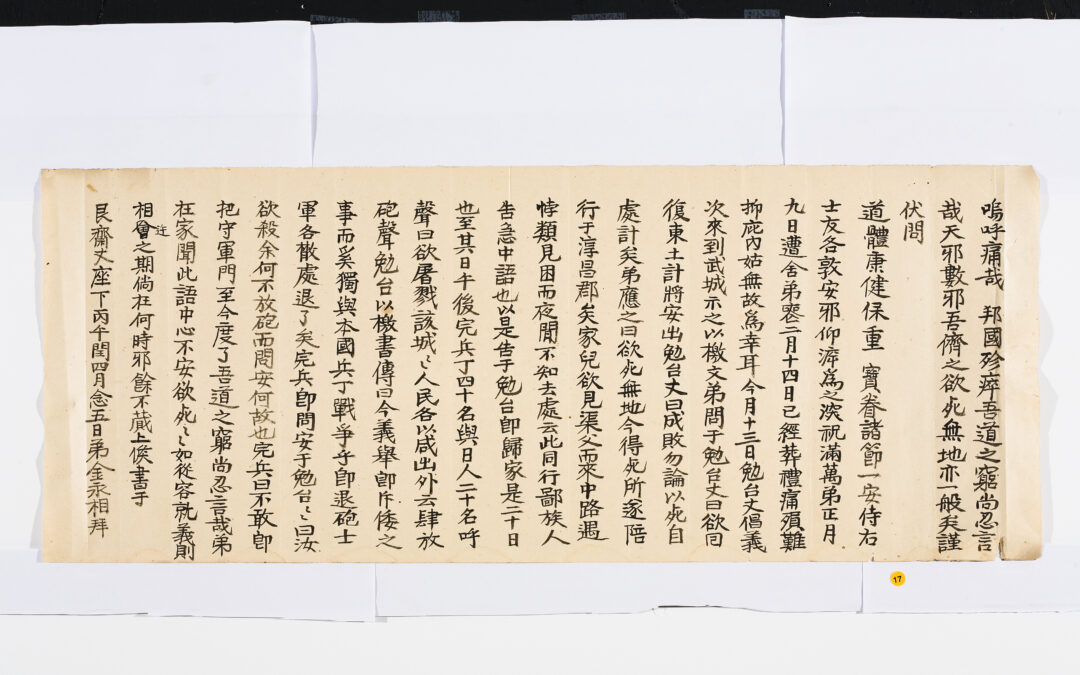 嗚呼痛哉 邦國殄瘁吾道之窮尚忍言
哉天邪數邪吾儕之欲死無地亦一般矣謹
伏問
道體康健保重 寶眷諸節一安侍右
士友各敦安邪仰溸為之深祝滿萬弟正月
九日遭舍弟喪二月十四日已經葬禮痛殞難
抑庇內姑無故爲幸耳今月十三日勉台丈倡義
次來到武城示之以檄文弟問于勉台丈曰欲回
復東土計將安出勉台丈曰成敗勿論以死自
處計矣弟應之曰欲死無地今得死所遂陪
行于淳昌郡矣家兒欲見渠父而來中路遇
悖類見困而夜間不知去處云此同行鄙族人
告急中語也以是告于勉台卽歸家是二十日
也至其日午後完兵丁四十名與日人二十名呼
聲曰欲屠戮該城〻人民各以咸出外云肆放
砲聲勉台以檄書傳曰今義舉卽斥倭之
事而奚獨與本國兵丁戰爭乎卽退砲士
軍各散處退了矣完兵卽問安于勉台〻曰汝
欲殺余何不放砲而問安何故也完兵曰不敢卽
把守軍門至今度了吾道之窮尚忍言哉弟
在家聞此語中心不安欲死〻如從容就義則
相會之期倘在何時邪餘不蕆上候書于
艮齋丈座下丙午閏四月念五日弟金永相拜
17